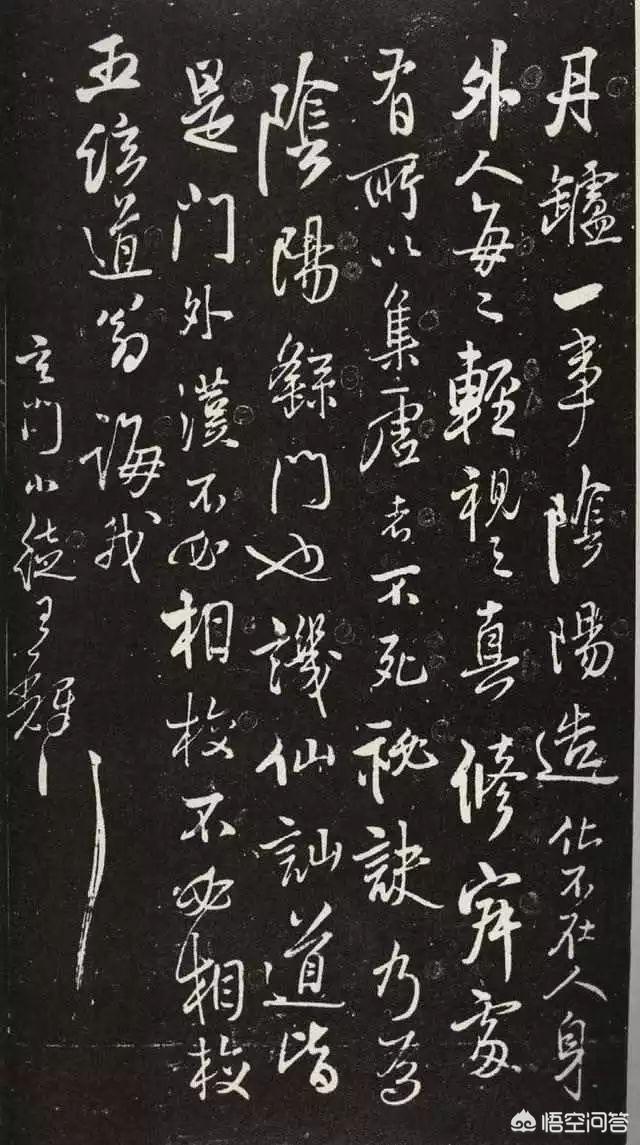 丹罏一事陰陽造化不在人身
外人每々輕視之真修處
有所以集虛者不死秘訣乃為
陰陽門也譏仙訕道皆
是門外漢不必相校不必相校
道翁誨我
玄門小徒王輝
悟空问答